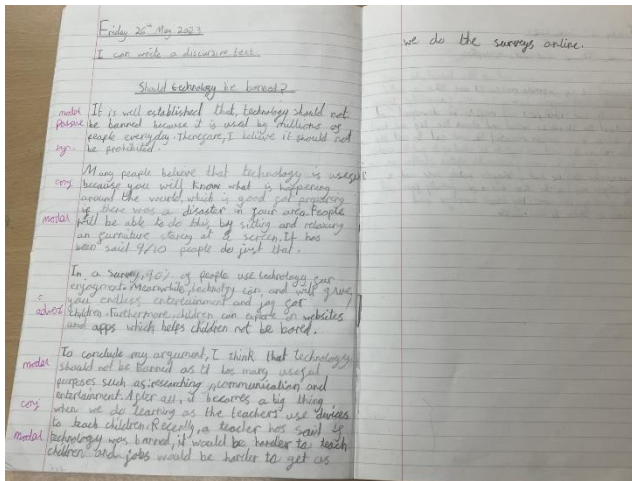 Friday 26th May 2023
I can write a discursive text.
Should technology be banned?
modal It is well established that, technology should not
passive be banned because it is used by millions of
people everyday. Therefore, I believe it should not
syn. be prohibited.
Many people believe that technology is useful
conj because you will know what is happening
around the world, which is good for preparing
if there was a disaster in your area. People
modal will be able to do this by sitting and relaxing
on furniture staring at a screen. It has
been said 9/10 people do just that.
In a survey, 90% of people use technology for
enjoyment. Meanwhile, technolgy can and will give
you endless entertainment and joy for
adverb children. Furthermore, children can explore on websites
and apps which helps children not be bored.
To conclude my argument, I think that technology
modal should not be banned as it has many useful
purposes such as: researching, communication and
entertainment. After all, it becomes a big thing
conj when we do learning as the teachers use devices
to teach children. Recently, a teacher has said if
modal technology was banned, it would be harder to teach
children and jobs would be harder to get as
we do the surveys online.